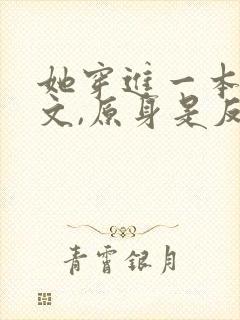 她穿进一本
文,原身是反
青霄银月